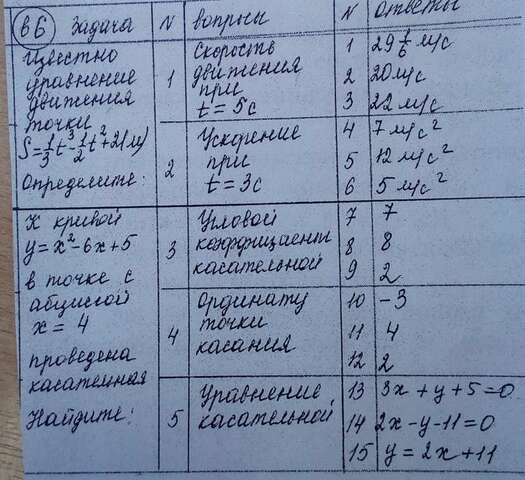 в6 Задача N вопросы N Ответы
Известно
уравнение
движения
точки
S=1/3 t³-1/2 t²+2(м)
Определите:
1 Скорость
движения
при
t=5c
1 29 1/6 м/с
2 20м/с
3 22 м/с
2 Ускорение
при
t=3c
4 7 м/с²
5 12 м/с²
6 5 м/с²
К кривой
y=x²-6x+5
в точке с
абциссой
x=4
проведена
касательная
Найдите:
3 Угловой
коэффициент
касательной
7 7
8 8
9 2
4 Ординату
точки
касания
10 -3
11 4
12 2
5 Уравнение
касательной
13 3x+y+5=0
14 2x-y-11=0
15 y=2x+11